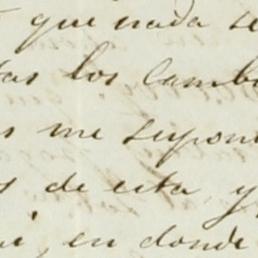 que nada se
tas los camb
s me supon
s de esta y
i, en donde